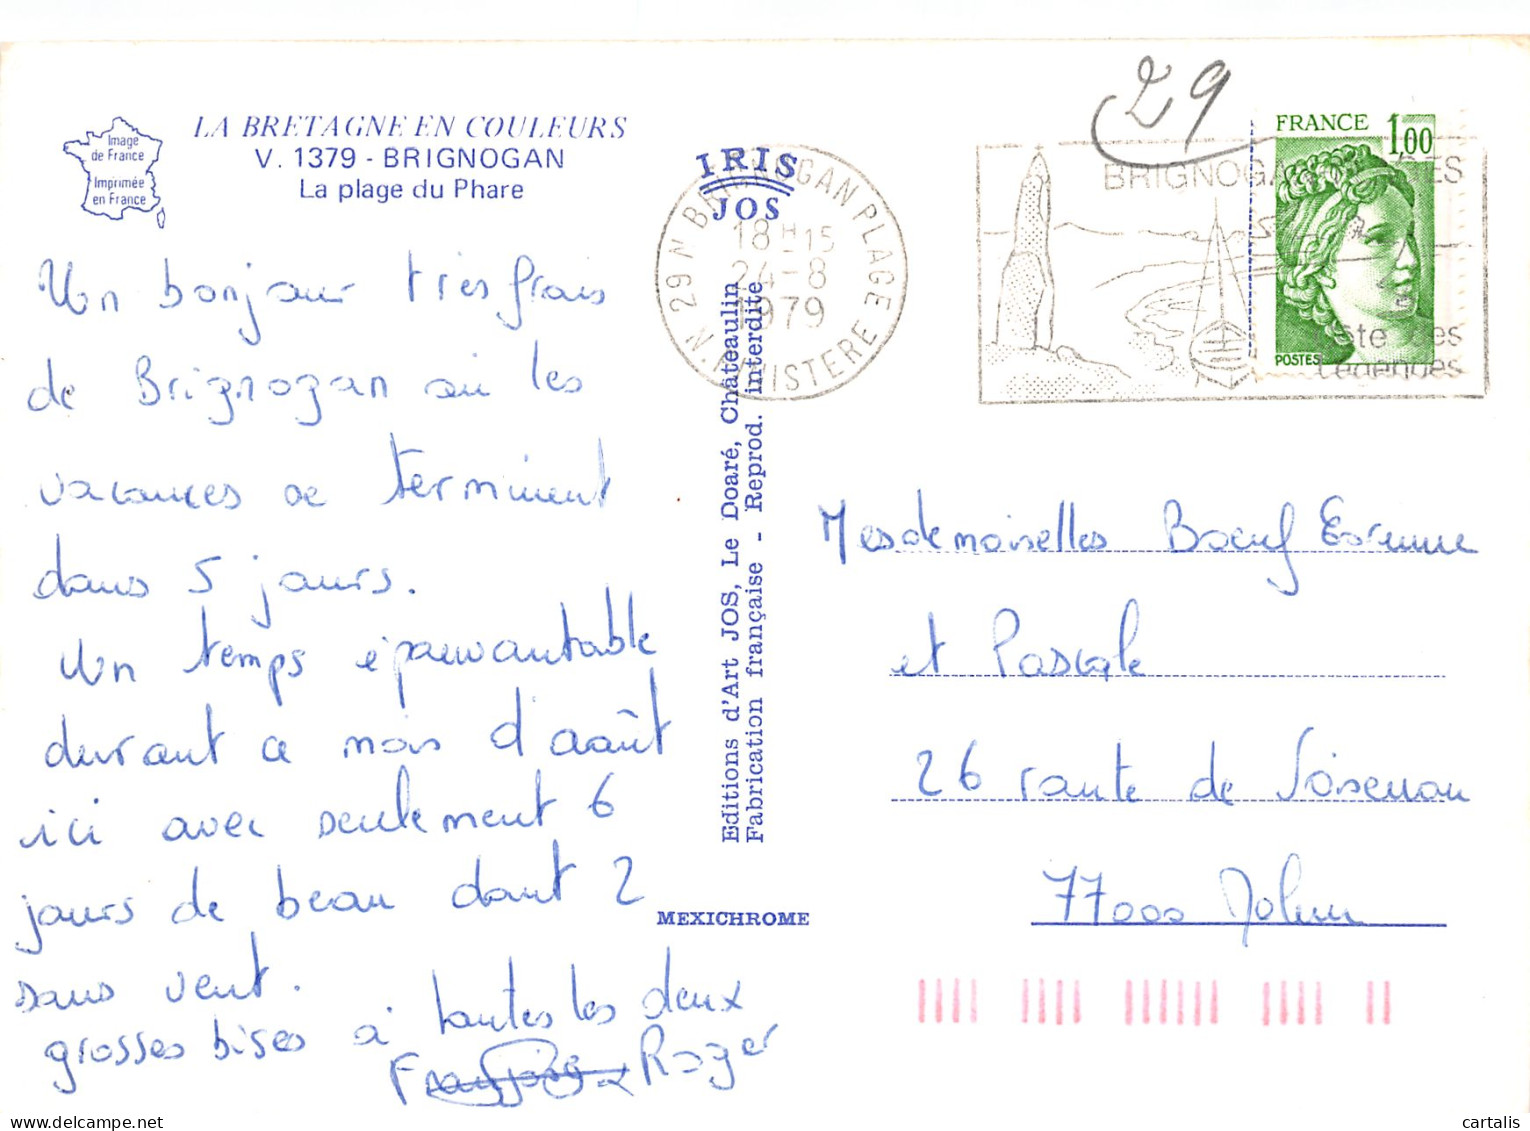 29
Image
de France
Imprimée
en France
LA BRETAGNE EN COULEURS
V. 1379 - BRIGNOGAN
La plage du Phare
IRIS
JOS
29 N BRIGNOGAN PLAGE
18H15
24-8
1979
N. FINISTERE
BRIGNOGAN
FRANCE 1,00
POSTES
Légendes
Un bonjour très frais
de Brignogan où les
vacances se terminent
dans 5 jours.
Un temps épouvantable
durant ce mois d'août
ici avec seulement 6
jours de beau dont 2
sans vent.
grosses bises à toutes les deux
Roger
Editions d'Art JOS, Le Doaré, Châteaulin
Fabrication française - Reprod. interdite
MEXICHROME
Mesdemoiselles Boeuf
et Pascale
26 route de Voisenon
77000 Melun
cartalis